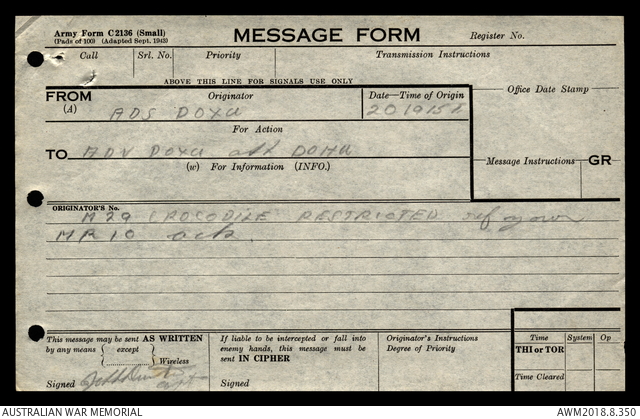 Army Form C2136 (Small)
(Pads of 100) (Adapted Sept. 1943)
MESSAGE FORM
Register No.
Call
Srl. No.
Priority
Transmission Instructions
ABOVE THIS LINE FOR SIGNALS USE ONLY
FROM
(A)
Originator
Date—Time of Origin
Office Date Stamp
ADS DOXU
For Action
TO
ADV DOXU
(w) For Information (INFO.)
Message Instructions
GR
ORIGINATOR'S No.
M29 CROCODILE RESTRICTED ref your
MR 10 ack.
This message may be sent AS WRITTEN
by any means
except
Wireless
Signed
If liable to be intercepted or fall into
enemy hands, this message must be
sent IN CIPHER
Signed
Originator's Instructions
Degree of Priority
Time
System
Op
THI or TOR
Time Cleared
AUSTRALIAN WAR MEMORIAL
AWM2018.8.350